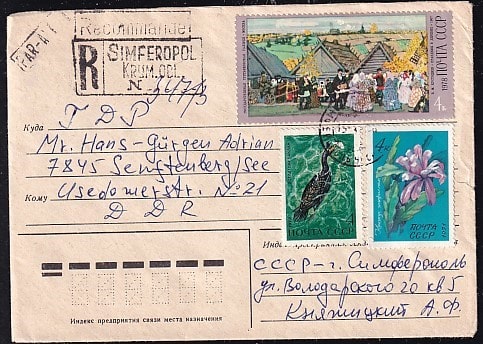 Recommandé
R
SIMFEROPOL
Krum. obl.
N
ПОЧТА СССР
1978
4к
Куда
ГДР
Mr. Hans-Gürgen Adrian
7845 Senftenberg/See
Кому
Usedomerstr. № 21
DDR
ПОЧТА СССР
4
4к
ПОЧТА
СССР
СССР - г. Симферополь
ул. Володарского 20 кв 5
Княтицкий А. Ф.
Индекс предприятия связи места назначения